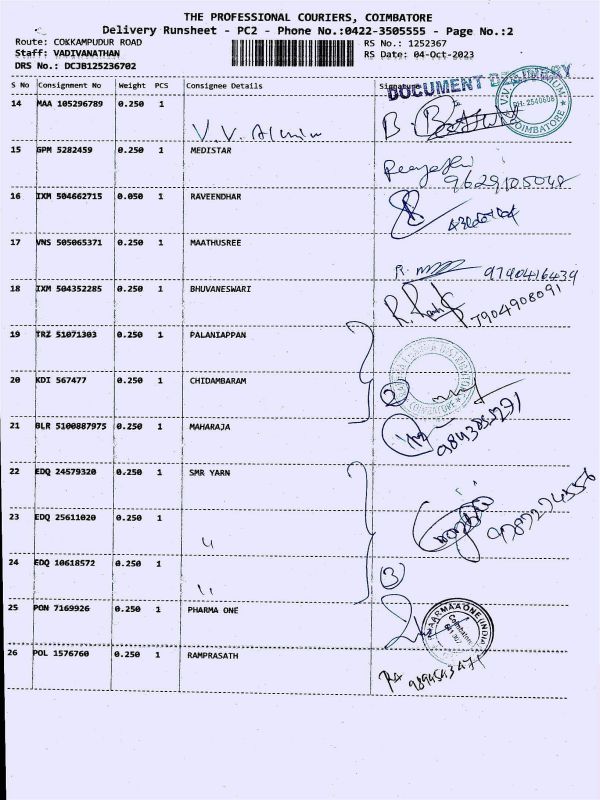 THE PROFESSIONAL COURIERS, COIMBATORE
Delivery Runsheet - PC2 - Phone No.:0422-3505555 - Page No.:2
Route: COKKAMPUDUR ROAD RS No.: 1252367
Staff: VADIVANATHAN RS Date: 04-Oct-2023
DRS No.: DCJB125236702
S No Consignment No Weight PCS Consignee Details Signature
DOCUMENT DELIVERY
14 MAA 105296789 0.250 1 V.V. PH: 2540606 COIMBATORE
15 GPM 5282459 0.250 1 MEDISTAR
9629105048
16 IXM 504662715 0.050 1 RAVEENDHAR
17 VNS 505065371 0.250 1 MAATHUSREE
9790416439
18 IXM 504352285 0.250 1 BHUVANESWARI
7904908091
19 TRZ 51071303 0.250 1 PALANIAPPAN
20 KDI 567477 0.250 1 CHIDAMBARAM 2
COIMBATORE
21 BLR 5100887975 0.250 1 MAHARAJA
22 EDQ 24579320 0.250 1 SMR YARN
23 EDQ 25611020 0.250 1 "
9787274556
24 EDQ 10618572 0.250 1 " 3
25 PON 7169926 0.250 1 PHARMA ONE
26 POL 1576760 0.250 1 RAMPRASATH